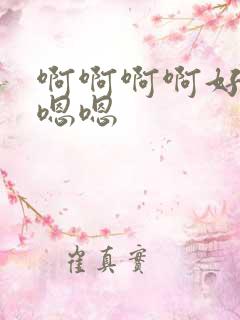 啊啊啊啊好
嗯嗯
崔真实